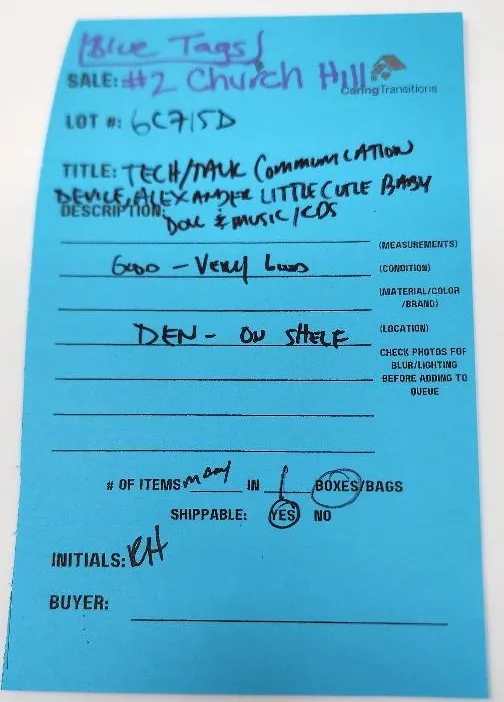 Blue Tags
SALE: #2 Church Hill
CaringTransitions
LOT #: 6C715D
TITLE: TECH/TALK COMMUNICATION
DEVICE, ALEXANDER LITTLE CUTIE BABY
DESCRIPTION: DOLL & MUSIC/CDS
(MEASUREMENTS)
GOOD - VERY GOOD (CONDITION)
(MATERIAL/COLOR
/BRAND)
DEN - ON SHELF (LOCATION)
CHECK PHOTOS FOR
BLUR/LIGHTING
BEFORE ADDING TO
QUEUE
# OF ITEMS many IN 1 BOXES/BAGS
SHIPPABLE: YES NO
INITIALS: RH
BUYER: